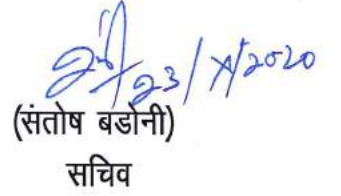 23/X/2020
(संतोष बडोनी)
सचिव